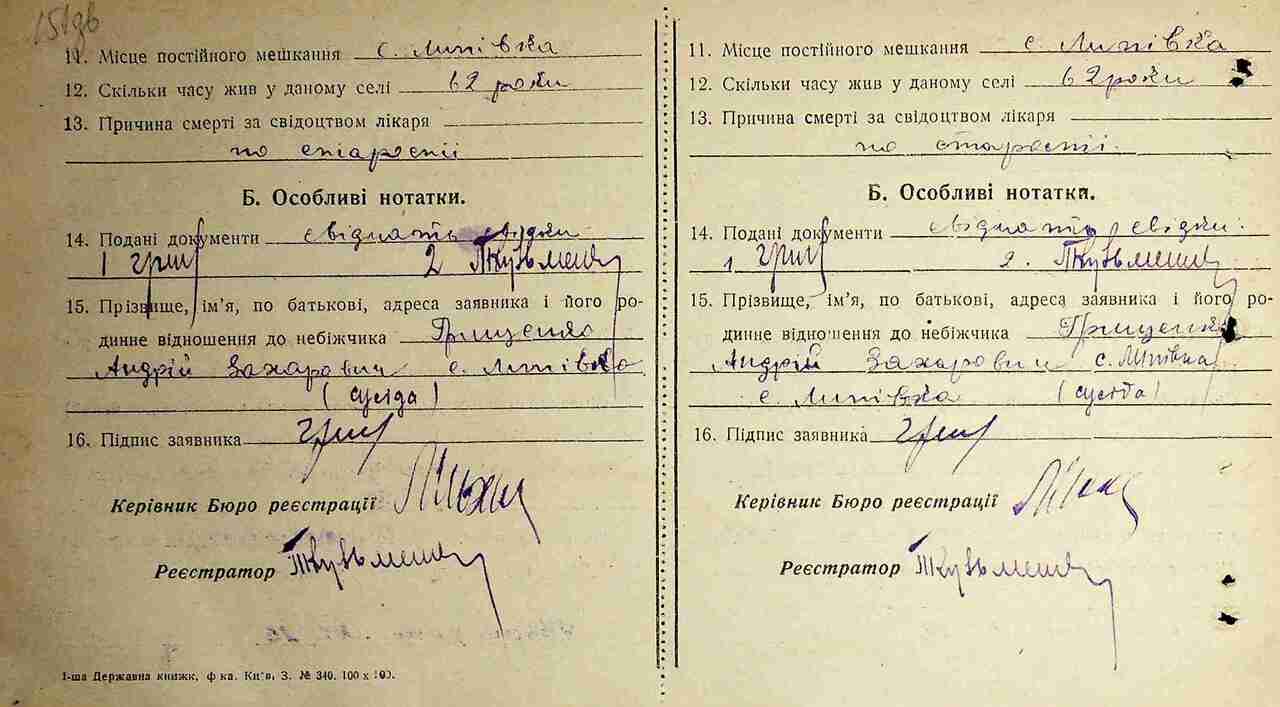 151зв
11. Місце постійного мешкання с. Липівка
12. Скільки часу жив у даному селі 62 роки
13. Причина смерті за свідоцтвом лікаря
по старости
Б. Особливі нотатки.
14. Подані документи свідчать свідки
1 Гриц 2 ТКузьменко
15. Прізвище, ім’я, по батькові, адреса заявника і його ро-
динне відношення до небіжчика Гриценко
Андрій Захарович с. Липівка
(сусіда)
16. Підпис заявника Гриц
Керівник Бюро реєстрації
Реєстратор ТКузьменко
1-ша Державна книжк, ф-ка. Київ, З. № 340. 100 x 100.
11. Місце постійного мешкання с. Липівка
12. Скільки часу жив у даному селі 62 роки
13. Причина смерті за свідоцтвом лікаря
по старости.
Б. Особливі нотатки.
14. Подані документи свідчать свідки.
1 Гриц 2. ТКузьменко
15. Прізвище, ім’я, по батькові, адреса заявника і його ро-
динне відношення до небіжчика Гриценко
Андрій Захарович с. Липівка
с. Липівка (сусіда)
16. Підпис заявника Гриц
Керівник Бюро реєстрації
Реєстратор ТКузьменко